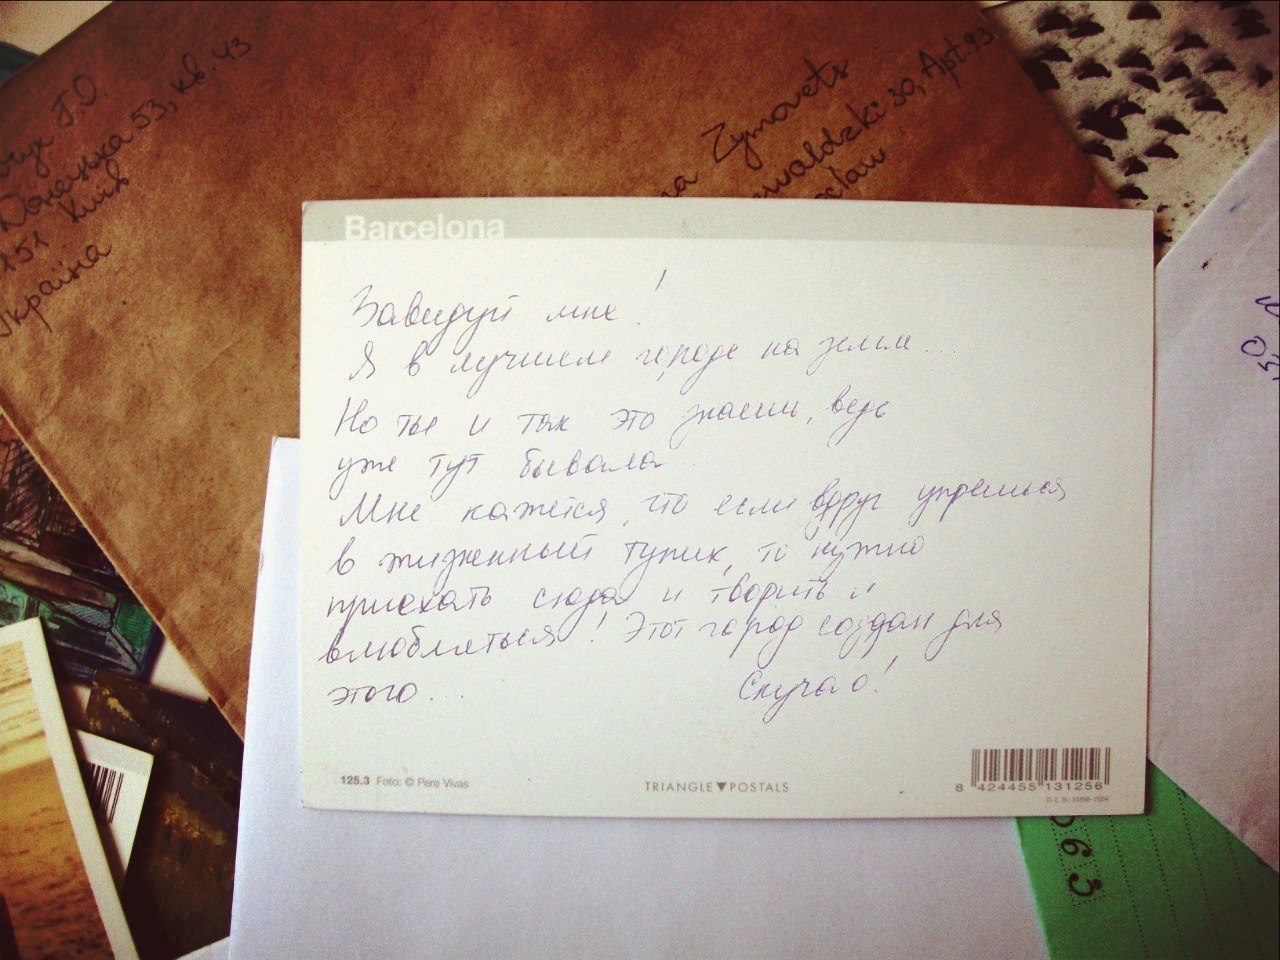 Г.О.
Донецька 53, кв. 43
Київ
Україна
Zymovets
30, Apt. 93
Barcelona
Завидуй мне!
Я в лучшем городе на земле...
Но ты и так это знаешь, ведь
уже тут бывала...
Мне кажется, что если вдруг упрешься
в жизненный тупик, то нужно
приехать сюда и творить и
влюбляться! Этот город создан для
этого...
Скучаю!
125.3 Foto: © Pere Vivas
TRIANGLE▼POSTALS
8 424455 131256
63